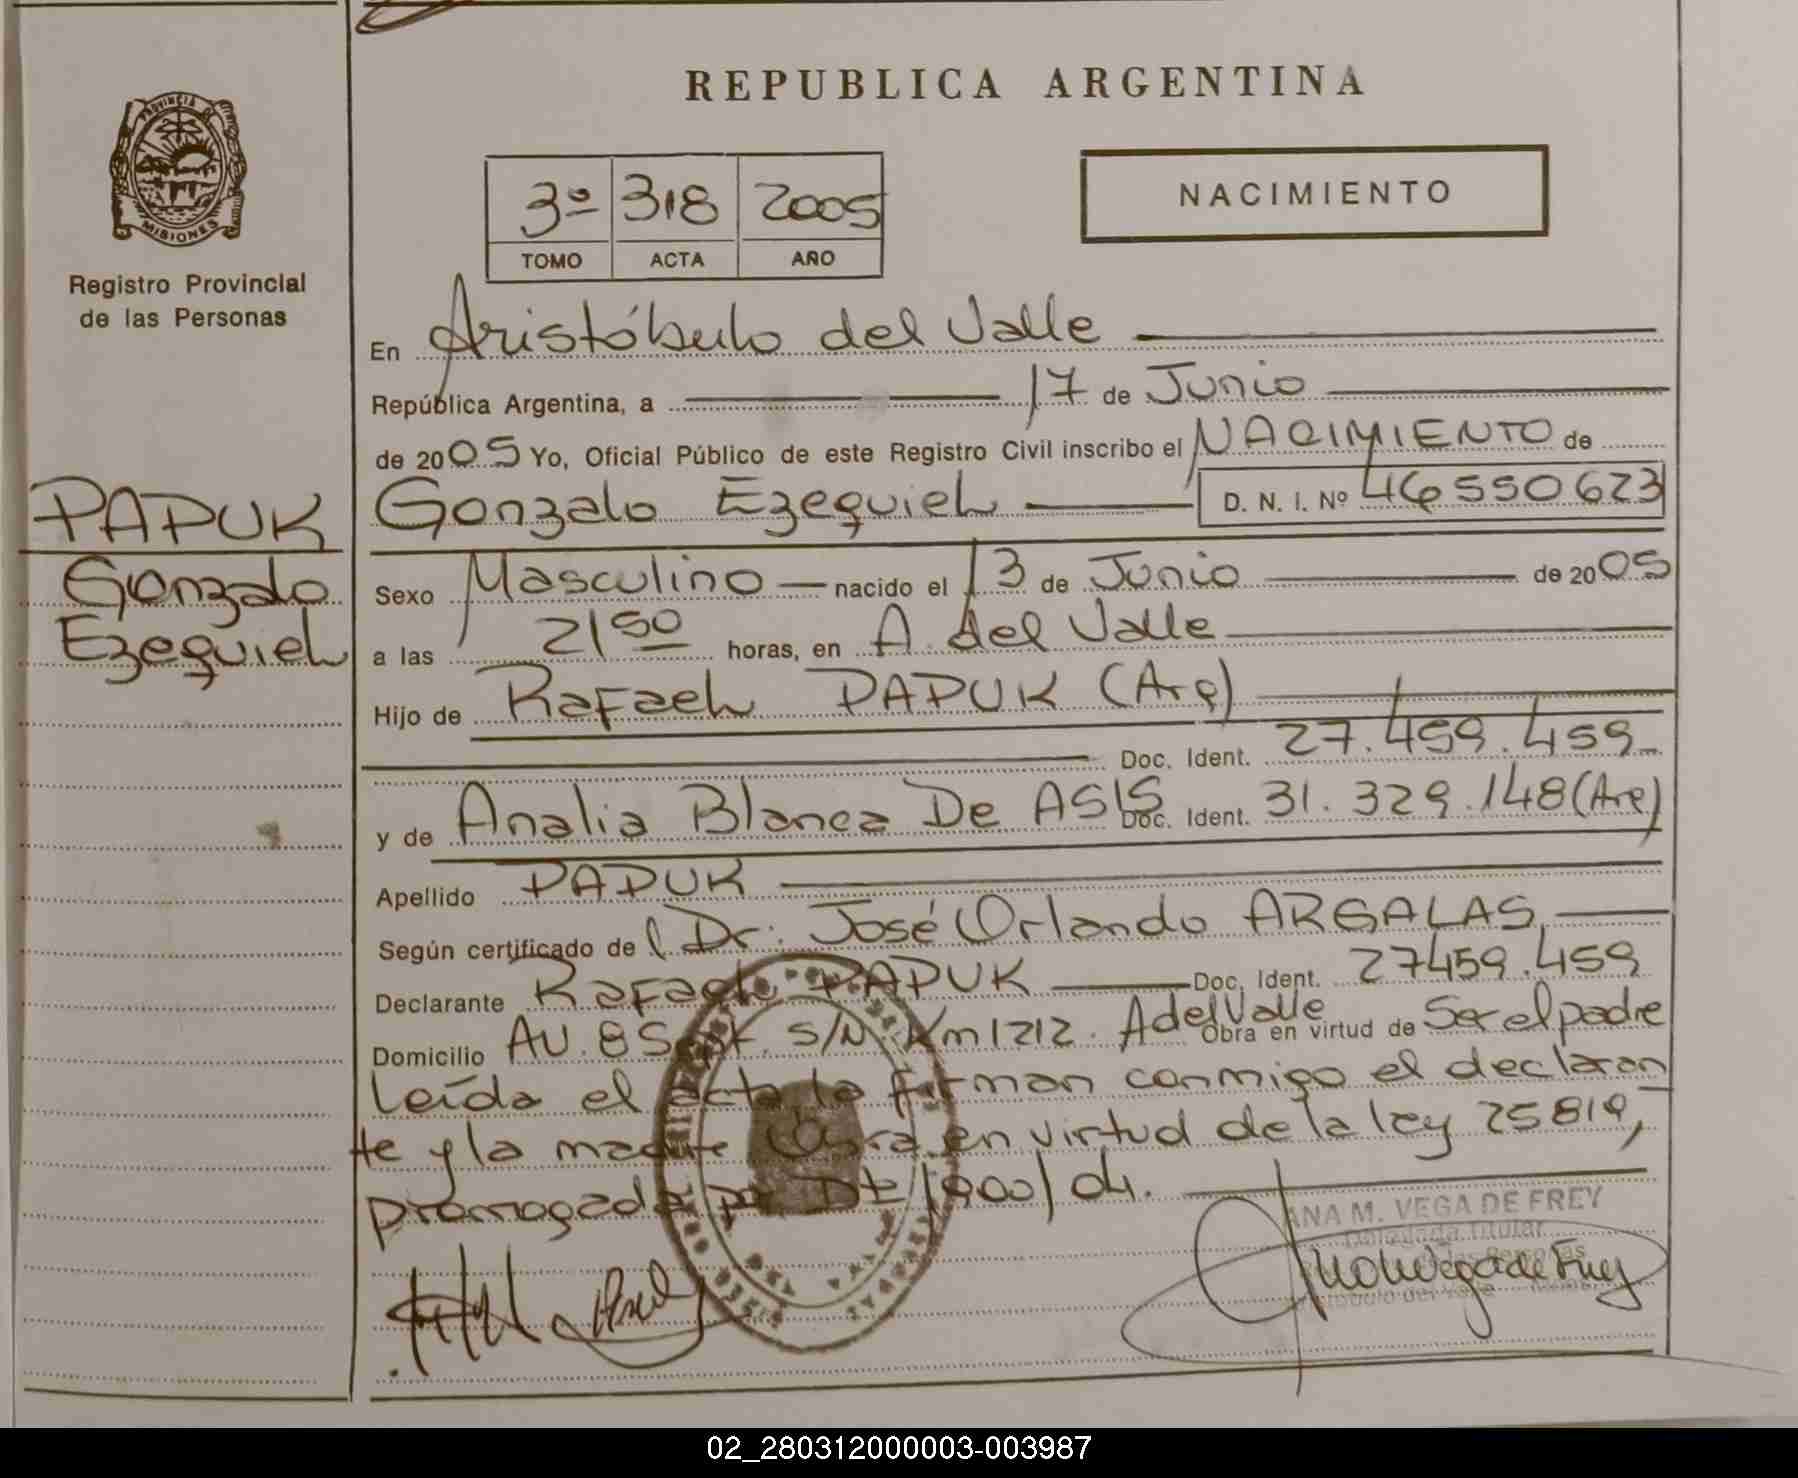 REPUBLICA ARGENTINA
PROVINCIA DE
MISIONES
Registro Provincial
de las Personas
3º 318 2005
TOMO ACTA AÑO
NACIMIENTO
En Aristóbulo del Valle
República Argentina, a 17 de Junio
de 2005 Yo, Oficial Público de este Registro Civil inscribo el NACIMIENTO de
PAPUK
Gonzalo Ezequiel D. N. I. Nº 46550623
Gonzalo
Ezequiel
Sexo Masculino nacido el 13 de Junio de 2005
a las 21 50 horas, en A. del Valle
Hijo de Rafael PAPUK (Arg)
Doc. Ident. 27.459.459
y de Analia Blanca De ASIS Doc. Ident. 31.329.148 (Arg)
Apellido PAPUK
Según certificado de l Dr. José Orlando ARGALAS
Declarante Rafael PAPUK Doc. Ident. 27459.459
Domicilio AV. 8 Sept. S/N Km 1212. A del Valle Obra en virtud de Ser el padre
Leída el acta la firman conmigo el declaran
te y la madre Obra en virtud de la ley 25819,
promogada por Dt 1900/04.
ANA M. VEGA DE FREY
Delegada Titular
de las Personas
Aristóbulo del Valle
02_280312000003-003987